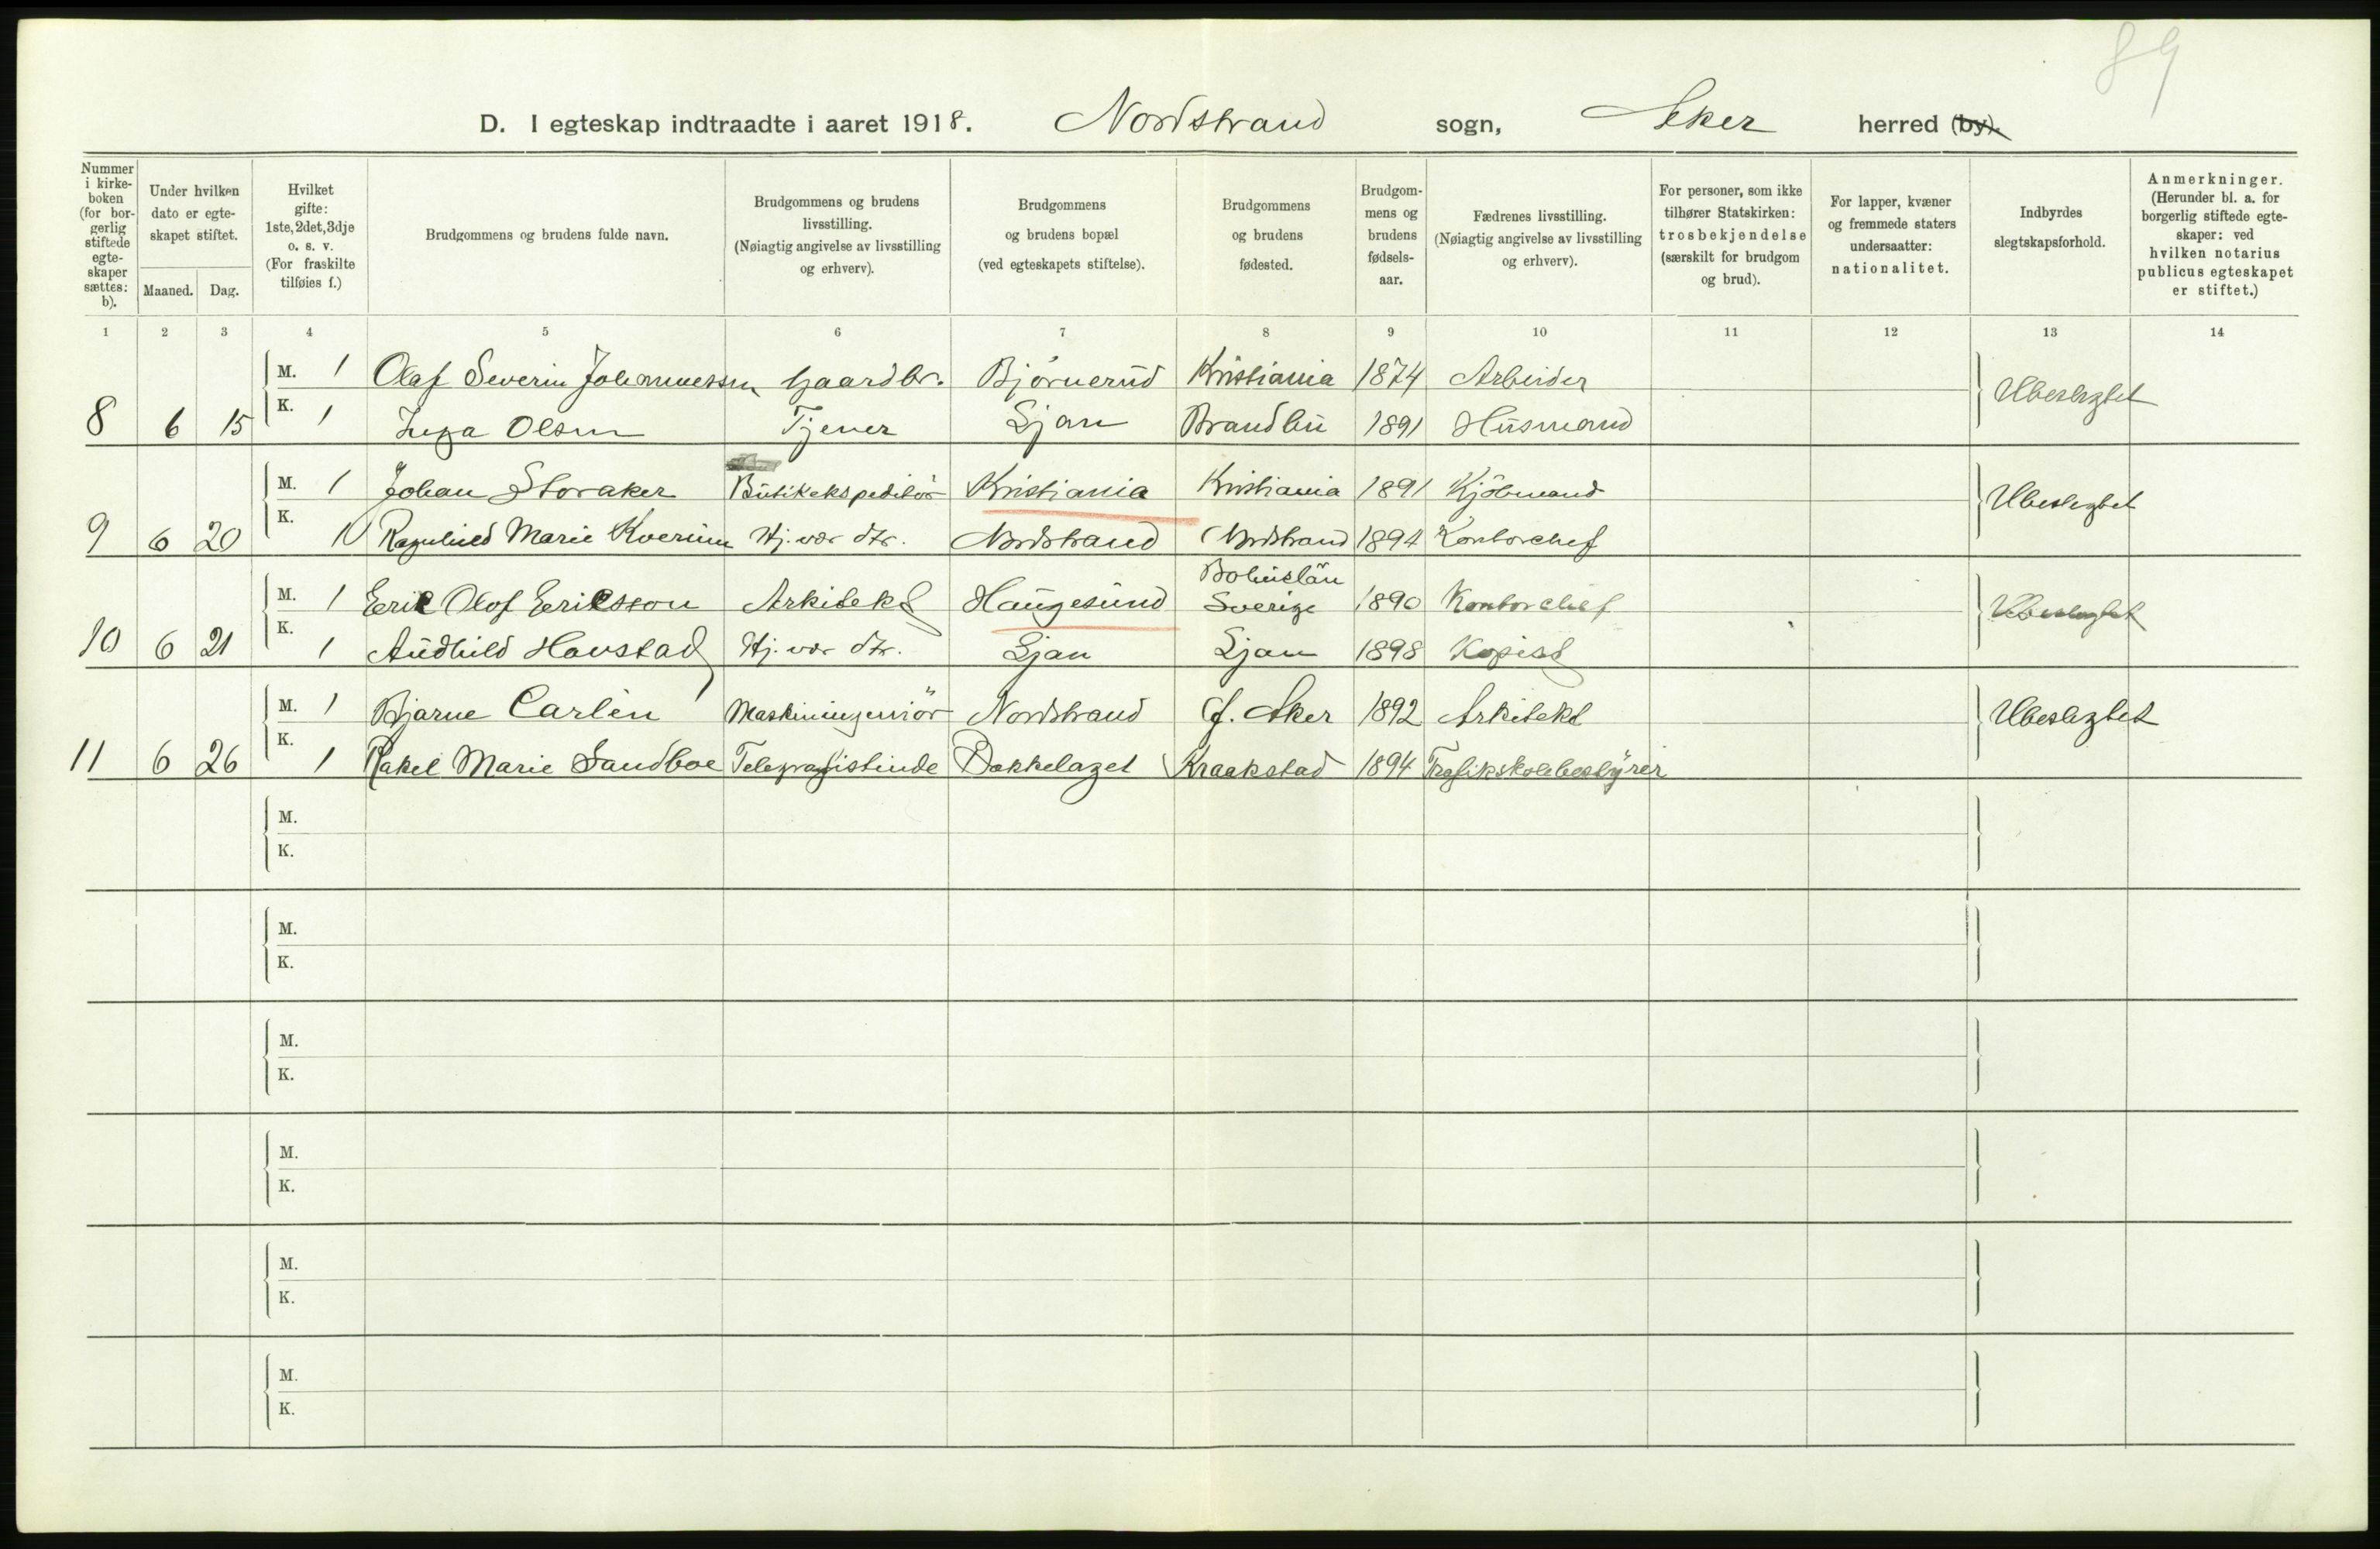 89
D. I egteskap indtraadte i aaret 1918. Nordstrand sogn, Aker herred (by).
Nummer i kirke- boken (for bor- gerlig stiftede egte- skaper sættes: b).
Under hvilken dato er egte- skapet stiftet.
Maaned. Dag.
Hvilket gifte: 1ste, 2det, 3dje o. s. v. (For fraskilte tilføies f.)
Brudgommens og brudens fulde navn.
Brudgommens og brudens livsstilling. (Nøiagtig angivelse av livsstilling og erhverv).
Brudgommens og brudens bopæl (ved egteskapets stiftelse).
Brudgommens og brudens fødested.
Brudgom- mens og brudens fødsels- aar.
Fædrenes livsstilling. (Nøiagtig angivelse av livsstilling og erhverv).
For personer, som ikke tilhører Statskirken: trosbekjendelse (særskilt for brudgom og brud).
For lapper, kvæner og fremmede staters undersaatter: nationalitet.
Indbyrdes slegtskapsforhold.
Anmerkninger. (Herunder bl. a. for borgerlig stiftede egte- skaper: ved hvilken notarius publicus egteskapet er stiftet.)
1 2 3 4 5 6 7 8 9 10 11 12 13 14
M. 1 Olaf Severin Johannessen Gaardbr. Bjørnerud Kristiania 1874 Arbeider Ubeslegtet
8 6 15 K. 1 Inga Olsen Tjener Ljan Brandbu 1891 Husmand
M. 1 Johan Storaker Butikekspeditör Kristiania Kristiania 1891 Kjöbmand Ubeslegtet
9 6 20 K. 1 Ragnhild Marie Kverum Hj. vær. dtr. Nordstrand Nordstrand 1894 Kontorchef
M. 1 Eric Olof Ericsson Arkitekt Haugesund Bohuslän Sverige 1890 Kontorchef Ubeslegtet
10 6 21 K. 1 Audhild Havstad Hj. vær. dtr. Ljan Ljan 1898 Kopist
M. 1 Bjarne Carlén Maskiningeniör Nordstrand Gf. Aker 1892 Arkitekt Ubeslegtet
11 6 26 K. 1 Rakel Marie Sandboe Telegrafistinde Bækkelaget Kraakstad 1894 Trafikskolebestyrer
M.
K.
M.
K.
M.
K.
M.
K.
M.
K.
M.
K.